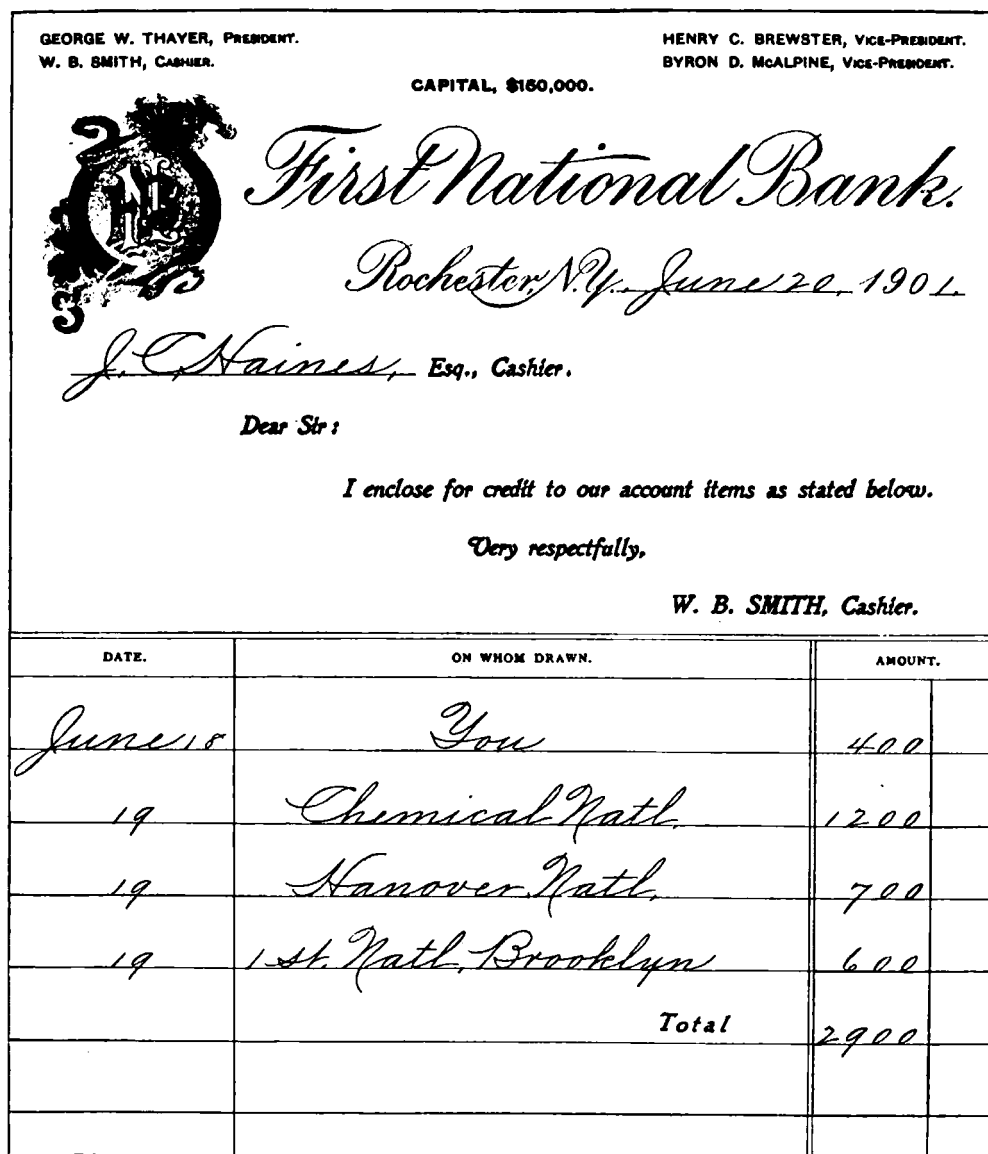 GEORGE W. THAYER, PRESIDENT. HENRY C. BREWSTER, VICE-PRESIDENT.
W. B. SMITH, CASHIER. BYRON D. McALPINE, VICE-PRESIDENT.
CAPITAL, $150,000.
First National Bank.
Rochester, N.Y. June 20, 1901.
J. C. Haines, Esq., Cashier.
Dear Sir:
I enclose for credit to our account items as stated below.
Very respectfully,
W. B. SMITH, Cashier.
DATE. ON WHOM DRAWN. AMOUNT.
June 18 You 400
19 Chemical Natl. 1200
19 Hanover Natl. 700
19 1st. Natl. Brooklyn 600
Total 2900